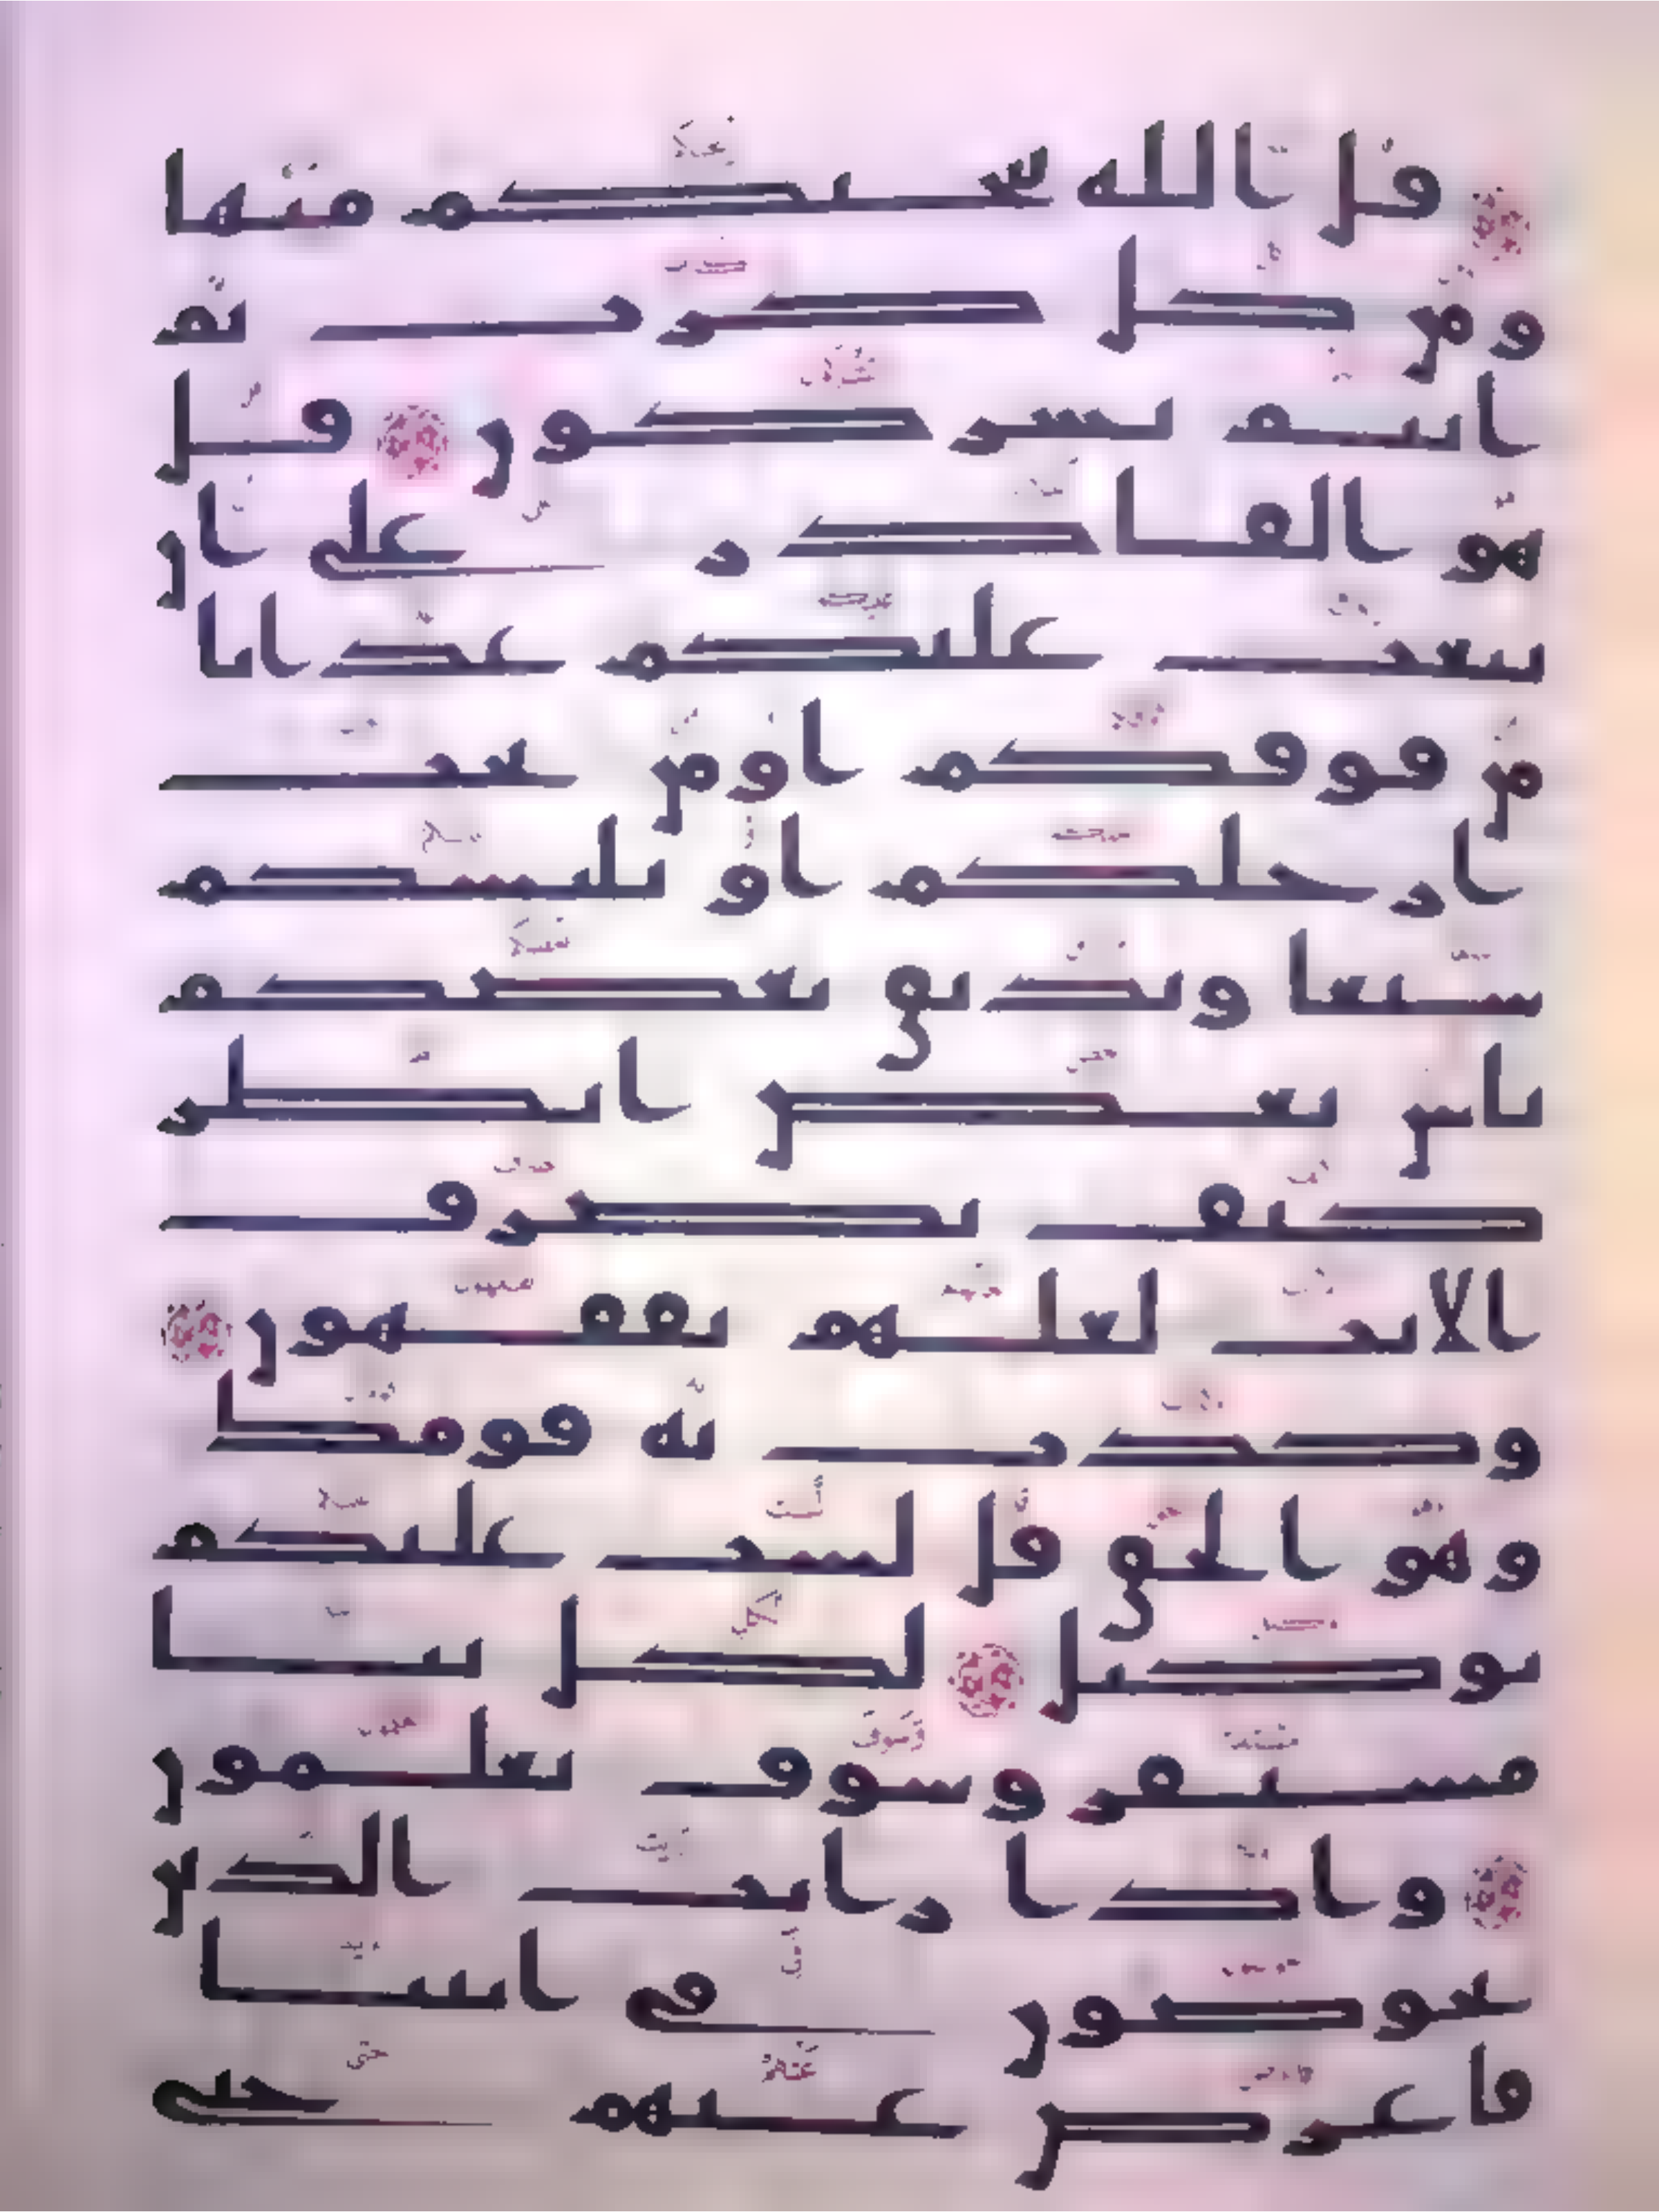 قل الله ينجيكم منها
ومن كل كرب ثم
انتم تشركون قل
هو القادر على ان
يبعث عليكم عذابا
من فوقكم او من تحت
ارجلكم او يلبسكم
شيعا ويذيق بعضكم
باس بعض انظر
كيف نصرف
الايت لعلهم يفقهون
وكذب به قومك
وهو الحق قل لست عليكم
بوكيل لكل نبا
مستقر وسوف تعلمون
واذا رايت الذين
يخوضون في ايتنا
فاعرض عنهم حتى